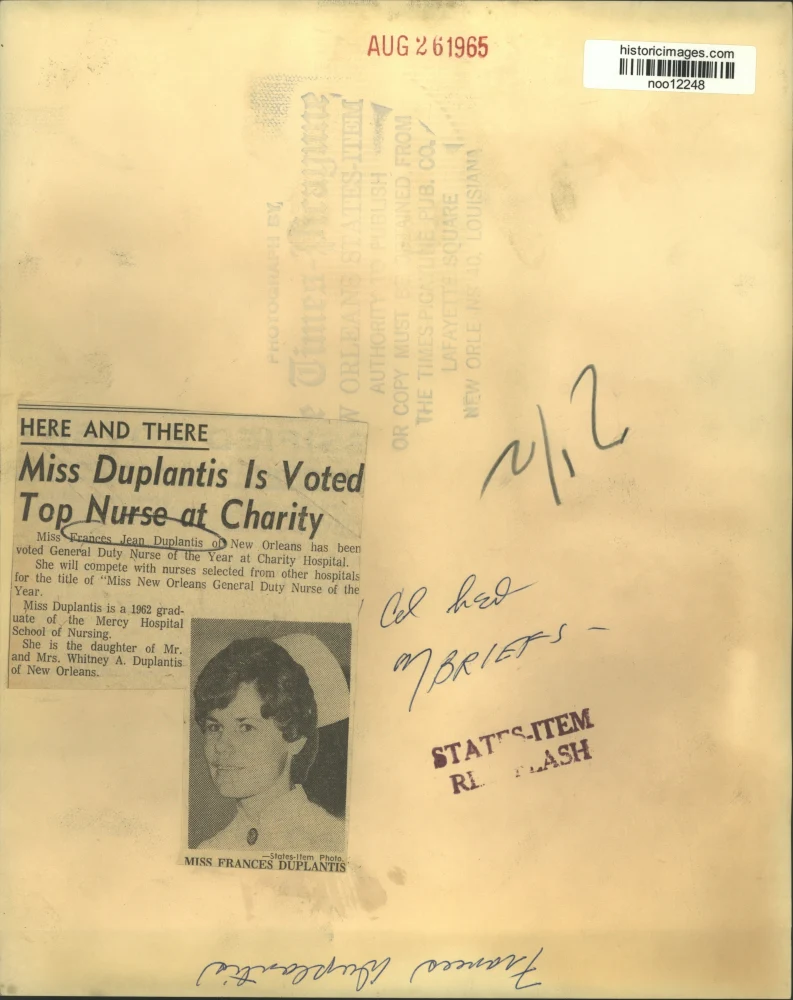 AUG 26 1965
historicimages.com
noo12248
PHOTOGRAPH BY
The Times-Picayune
NEW ORLEANS STATES-ITEM
AUTHORITY TO PUBLISH
OR COPY MUST BE OBTAINED FROM
THE TIMES-PICAYUNE PUB. CO.
LAFAYETTE SQUARE
NEW ORLEANS 40, LOUISIANA
HERE AND THERE
Miss Duplantis Is Voted
Top Nurse at Charity
Miss Frances Jean Duplantis of New Orleans has been
voted General Duty Nurse of the Year at Charity Hospital.
She will compete with nurses selected from other hospitals
for the title of “Miss New Orleans General Duty Nurse of the
Year.
Miss Duplantis is a 1962 grad-
uate of the Mercy Hospital
School of Nursing.
She is the daughter of Mr.
and Mrs. Whitney A. Duplantis
of New Orleans.
—States-Item Photo.
MISS FRANCES DUPLANTIS
2/12
BRIEFS —
STATES-ITEM
Frances Duplantis